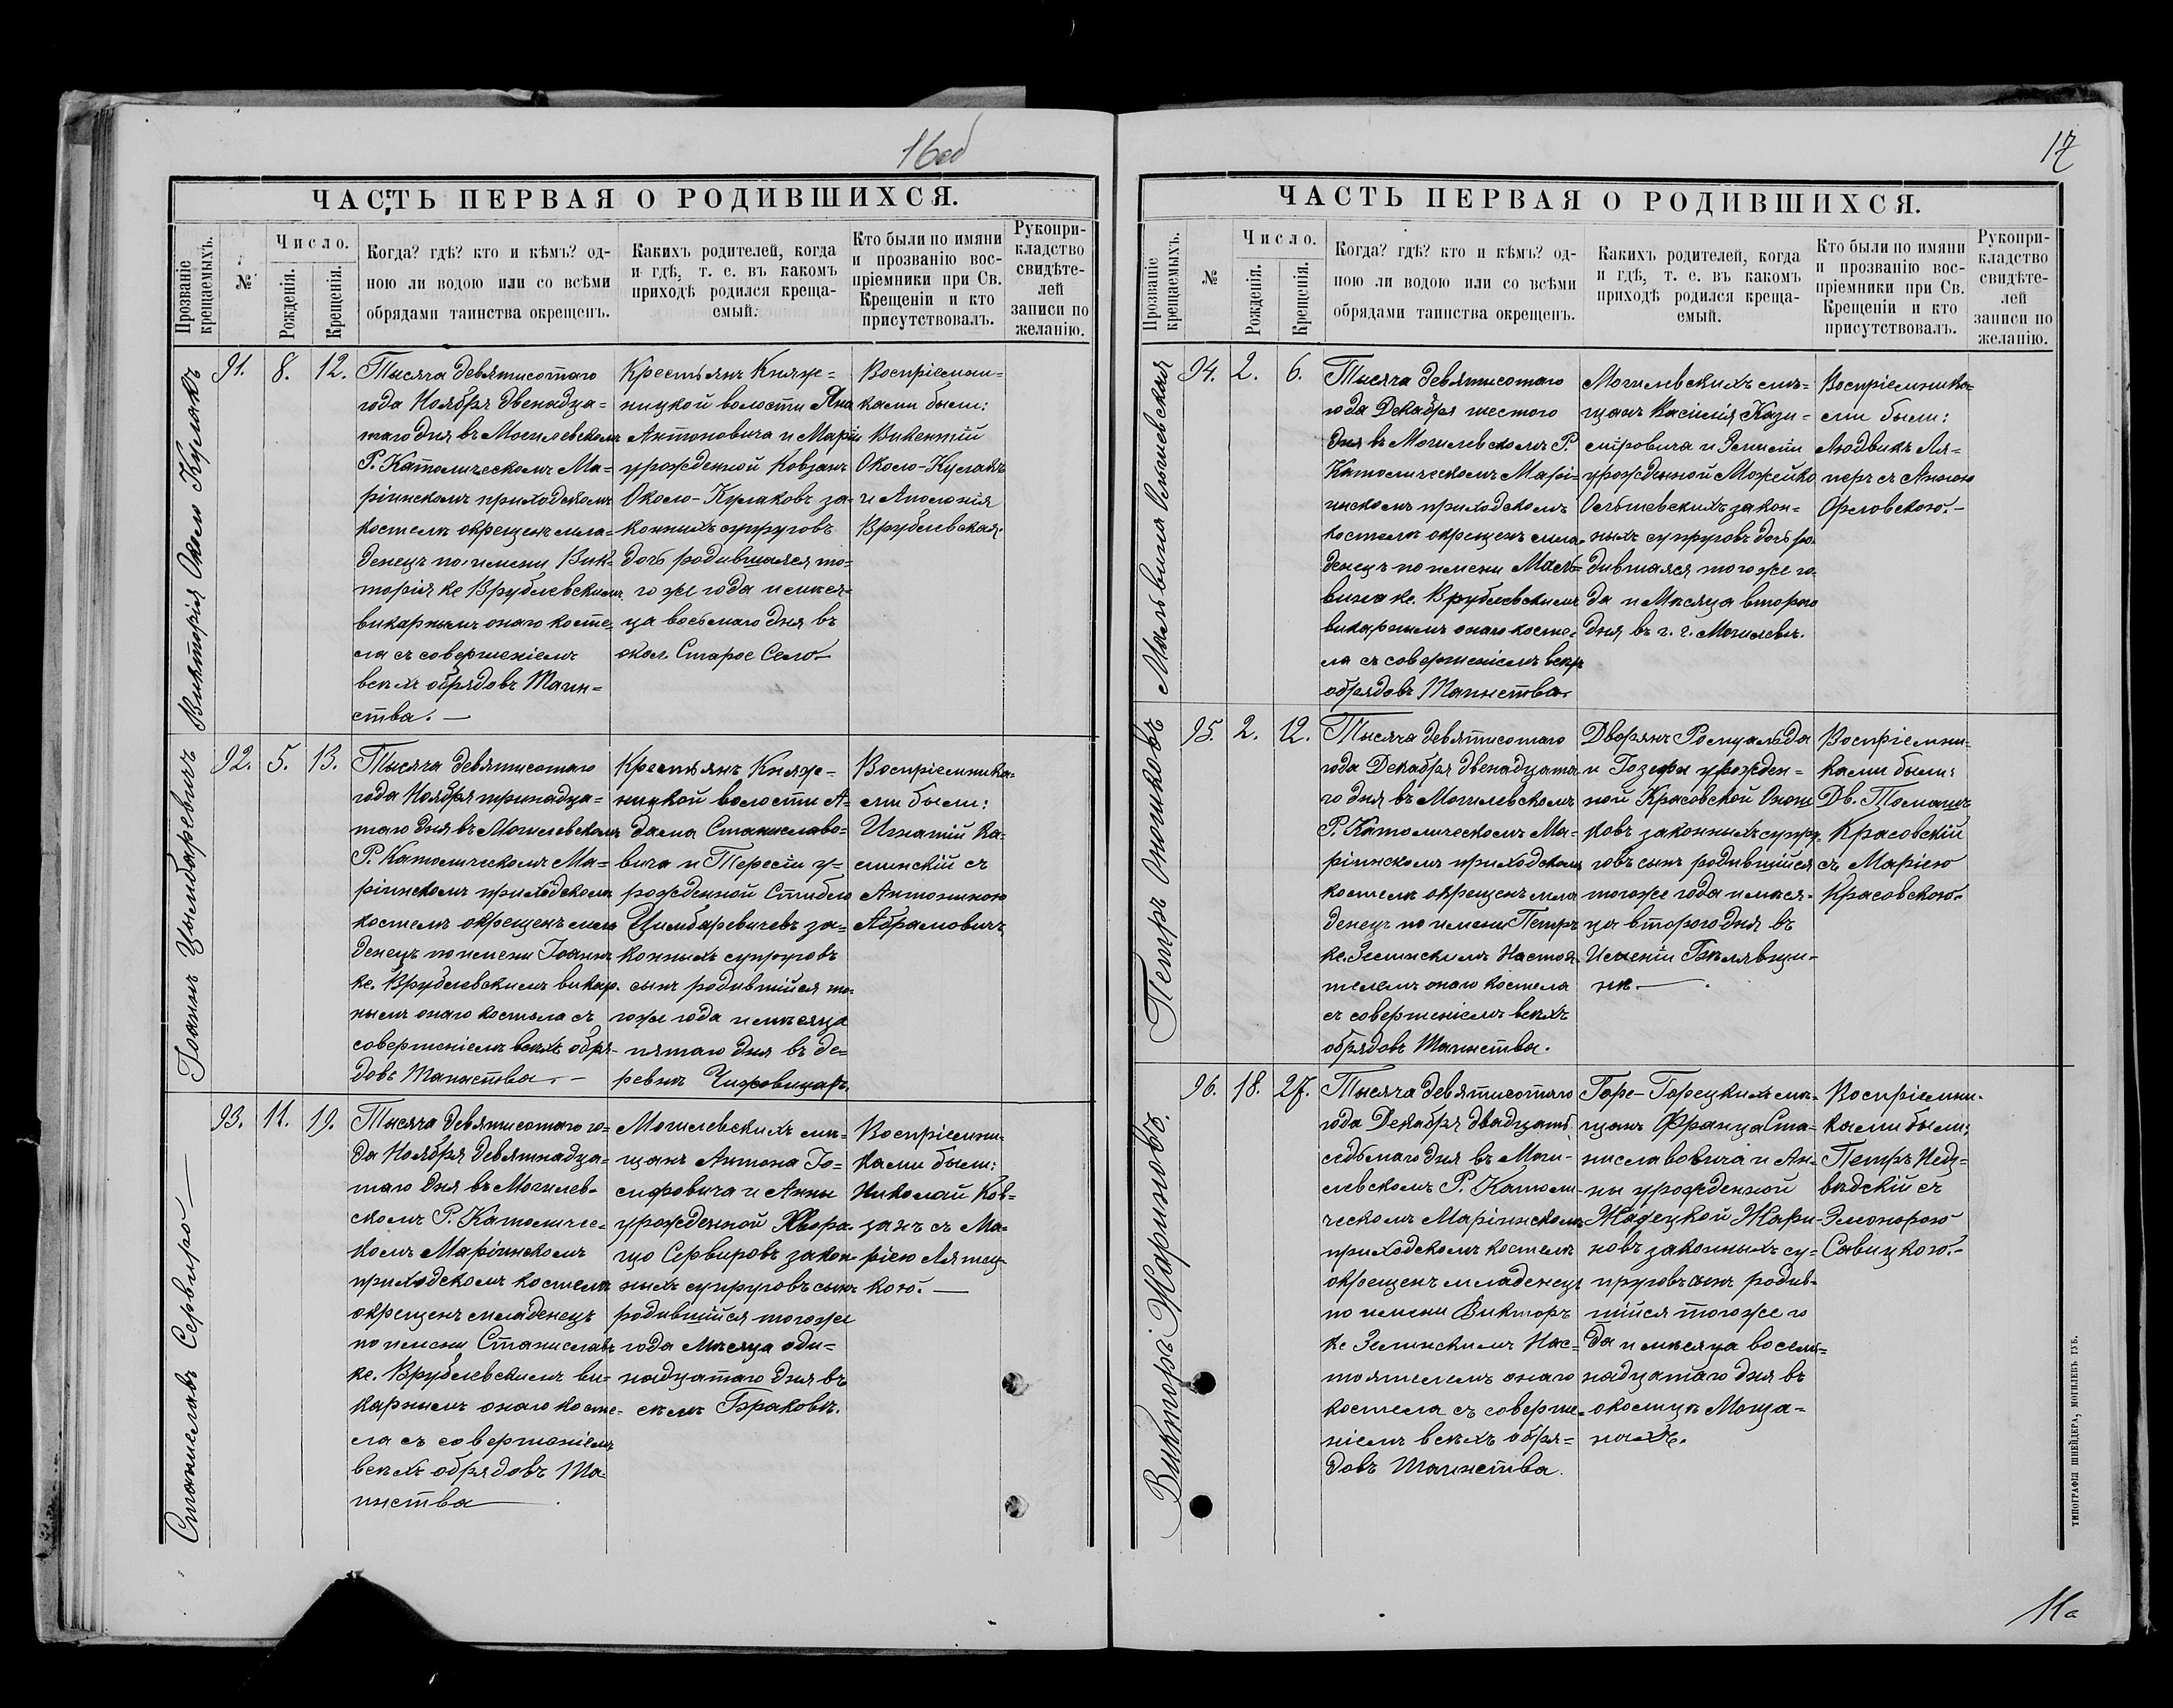 16об
ЧАСТЬ ПЕРВАЯ О РОДИВШИХСЯ.
Прозваніе крещаемыхъ.
№
Число.
Рожденія.
Крещенія.
Когда? гдѣ? кто и кѣмъ? од-
ною ли водою или со всѣми
обрядами таинства окрещенъ.
Какихъ родителей, когда
и гдѣ, т. е. въ какомъ
приходѣ родился креща-
емый.
Кто были по имяни
и прозванію вос-
пріемники при Св.
Крещеніи и кто
присутствовалъ.
Рукопри-
кладство
свидѣте-
лей
записи по
желанію.
Викторія Около Кулакъ
91.
8.
12.
Тысяча девятисотаго
года Ноября двенадца-
таго дня въ Могилевскомъ
Р. Католическомъ Ма-
ріинскомъ приходскомъ
костелѣ окрещенъ мла-
денецъ по имени Вик-
торія кс Врублевскимъ
викарнымъ онаго косте-
ла съ совершеніемъ
всѣхъ обрядовъ Таин-
ства. —
Крестьянъ Княже-
ницкой волости Яна
Антоновича и Маріи
урожденной Ковзанъ
Около-Кулаковъ за-
конныхъ супруговъ
дочь родившаяся то-
го же года и меся-
ца восьмаго дня въ
окол. Старое Село
Воспріемни-
ками были:
Викентій
Около-Кулакъ
и Аполонія
Врублевская.
Іоаннъ Цымбаревичъ
92.
5.
13.
Тысяча девятисотаго
года Ноября тринадца-
таго дня въ Могилевскомъ
Р. Католическомъ Ма-
ріинскомъ приходскомъ
костелѣ окрещенъ мла
денецъ по имени Іоаннъ
кс. Врублевскимъ викар-
нымъ онаго костела съ
совершеніемъ всѣхъ обря-
довъ Таинства. —
Крестьянъ Княже-
ницкой волости А-
дама Станиславо-
вича и Тересіи у-
рожденной Стибло
Цимбаревичевъ за-
конныхъ супруговъ
сынъ родившійся то-
гоже года и мѣсяца
пятаго дня въ де-
ревнѣ
Воспріемника-
ми были:
Игнатій Ка-
минскій съ
Антониною
Абрамовичъ
Станиславъ Сервиро
93.
11.
19.
Тысяча девятисотаго го-
да Ноября девятнадца-
таго дня въ Могилев-
скомъ Р. Католичес-
комъ Маріинскомъ
приходскомъ костелѣ
окрещенъ младенецъ
по имени Станиславъ
кс. Врублевскимъ ви-
карнымъ онаго косте-
ла съ совершеніемъ
всѣхъ обрядовъ Та-
инства
Могилевскихъ мѣ-
щанъ Антона Іо-
сифовича и Анны
урожденной
Сервировъ закон-
ныхъ супруговъ сынъ
родившійся тогоже
года мѣсяца оди-
надцатаго дня въ
селѣ Браковѣ.
Воспріемни-
ками были:
Николай Ков-
занъ съ Ма-
ріею Лятец-
кою. —
17
ЧАСТЬ ПЕРВАЯ О РОДИВШИХСЯ.
Прозваніе крещаемыхъ.
№
Число.
Рожденія.
Крещенія.
Когда? гдѣ? кто и кѣмъ? од-
ною ли водою или со всѣми
обрядами таинства окрещенъ.
Какихъ родителей, когда
и гдѣ, т. е. въ какомъ
приходѣ родился креща-
емый.
Кто были по имяни
и прозванію вос-
пріемники при Св.
Крещеніи и кто
присутствовалъ.
Рукопри-
кладство
свидѣте-
лей
записи по
желанію.
Мальвина
94.
2.
6.
Тысяча девятисотаго
года Декабря шестого
дня въ Могилевскомъ Р.
Католическомъ Марі-
инскомъ приходскомъ
костелѣ окрещенъ мла-
денецъ по имени Маль-
вина кс. Врублевскимъ
викарнымъ онаго косте-
ла съ совершеніемъ всѣхъ
обрядовъ Таинства.
Могилевскихъ мѣ-
щанъ Василія Кази-
мировича и
урожденной Можейко
закон-
ныхъ супруговъ дочь ро-
дившаяся того же го-
да и Мѣсяца второго
дня въ г. г. Могилевѣ.
Воспріемника-
ми были:
Людвикъ Ля-
перъ съ Анною
Орловскою. —
Петръ Оношковъ
95.
2.
12.
Тысяча девятисотаго
года Декабря двенадцата
го дня въ Могилевскомъ
Р. Католическомъ Ма-
ріинскомъ приходскомъ
костелѣ окрещенъ мла
денецъ по имени Петръ
кс. Зелинскимъ Настоя-
телемъ онаго костела
съ совершеніемъ всѣхъ
обрядовъ Таинства.
Дворянъ Ромуальда
и Іозефы урожден-
ной Красовской Онош
ковъ законныхъ супру-
говъ сынъ родившійся
тогоже года и мѣся-
ца второго дня въ
Имѣніи Бѣлявщи-
нѣ —
Воспріемни-
ками были:
Дв. Томашъ
Красовскій
съ Маріею
Красовскою.
Викторъ Жариновъ.
96.
18.
27.
Тысяча девятисотаго
года Декабря двадцать
седьмаго дня въ Моги-
левскомъ Р. Католи-
ческомъ Маріинскомъ
приходскомъ костелѣ
окрещенъ младенецъ
по имени Викторъ
кс Зелинскимъ Нас-
тоятелемъ онаго
костела съ соверше-
ніемъ всѣхъ обря-
довъ Таинства.
Горе-Горецкихъ мѣ-
щанъ Франца Ста-
ниславовича и Ан-
ны урожденной
Жадецкой Жари-
новъ законныхъ су-
пруговъ сынъ родив-
шійся тогоже го
да и мѣсяца восем-
надцатаго дня въ
околицѣ Моща-
нахъ.
Воспріемни-
ками были:
Петръ Недз-
вѣдскій съ
Элеонорою
Савицкою. —
ТИПОГРАФІЯ ШНЕЙДЕРА, МОГИЛЕВЪ ГУБ.